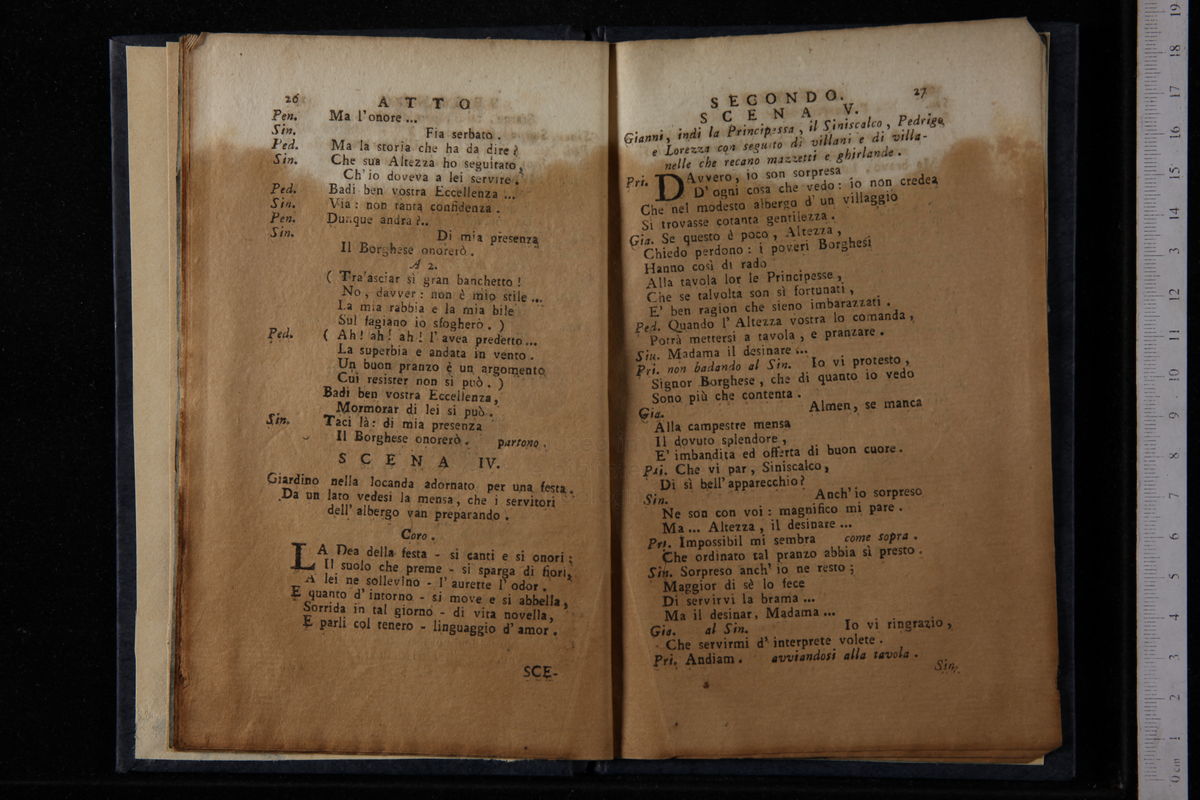 26 ATTO
Pen. Ma l'onore ...
Sin. Fia serbato.
Ped. Ma la storia che ha da dire?
Sin. Che sua Altezza ho seguitato,
Ch'io doveva a lei servire.
Ped. Badi ben vostra Eccellenza ...
Sin. Via: non tanta confidenza.
Pen. Dunque andrà?..
Sin. Di mia presenza
Il Borghese onorerò.
A 2.
( Tra'asciar sì gran banchetto!
No, davver: non è mio stile ...
La mia rabbia e la mia bile
Sul fagiano io sfogherò. )
Ped. ( Ah! ah! ah! l'avea predetto ...
La superbia e andata in vento.
Un buon pranzo è un argomento
Cui resister non si può. )
Badi ben vostra Eccellenza,
Mormorar di lei si può.
Sin. Taci là: di mia presenza
Il Borghese onorerò. partono.
SCENA IV.
Giardino nella locanda adornato per una festa.
Da un lato vedesi la mensa, che i servitori
dell'albergo van preparando.
Coro.
LA Dea della festa - si canti e si onori;
Il suolo che preme - si sparga di fiori,
A lei ne sollevino - l'aurette l'odor.
E quanto d'intorno - si move e si abbella,
Sorrida in tal giorno - di vita novella,
E parli col tenero - linguaggio d'amor.
SCE-
SECONDO. 27
SCENA V.
Gianni, indi la Principessa, il Siniscalco, Pedrigo
e Lorezza con seguito di villani e di villa-
nelle che recano mazzetti e ghirlande.
Pri. DAvvero, io son sorpresa
D'ogni cosa che vedo: io non credea
Che nel modesto albergo d'un villaggio
Si trovasse cotanta gentilezza.
Gia. Se questo è poco, Altezza,
Chiedo perdono: i poveri Borghesi
Hanno così di rado
Alla tavola lor le Principesse,
Che se talvolta son sì fortunati,
E' ben ragion che sieno imbarazzati.
Ped. Quando l'Altezza vostra lo comanda,
Potrà mettersi a tavola, e pranzare.
Sin. Madama il desinare ...
Pri. non badando al Sin. Io vi protesto,
Signor Borghese, che di quanto io vedo
Sono più che contenta.
Gia. Almen, se manca
Alla campestre mensa
Il dovuto splendore,
E' imbandita ed offerta di buon cuore.
Pri. Che vi par, Siniscalco,
Di sì bell'apparecchio?
Sin. Anch'io sorpreso
Ne son con voi: magnifico mi pare.
Ma ... Altezza, il desinare ...
Pri. Impossibil mi sembra come sopra.
Che ordinato tal pranzo abbia sì presto.
Sin. Sorpreso anch'io ne resto;
Maggior di sè lo fece
Di servirvi la brama ...
Ma il desinar, Madama ...
Gia. al Sin. Io vi ringrazio,
Che servirmi d'interprete volete.
Pri. Andiam. avviandosi alla tavola.
Sin.